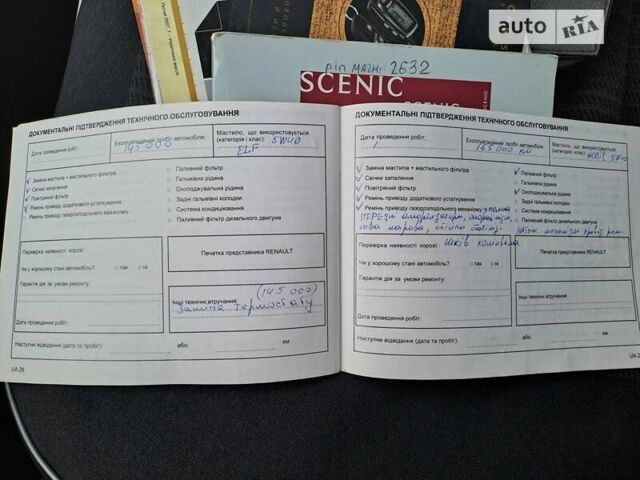 auto RIA
ріп магні: 2632
SCENIC
SCENIC
ДОКУМЕНТАЛЬНІ ПІДТВЕРДЖЕННЯ ТЕХНІЧНОГО ОБСЛУГОВУВАННЯ
Дата проведення робіт:
Експлуатаційний пробіг автомобіля:
145 000
Мастило, що використовується (категорія і клас): 5W40
ELF
Заміна мастила + мастильного фільтра
Свічки запалення
Повітряний фільтр
Ремінь приводу додаткового устаткування
Ремінь приводу газорозподільного механізму
Паливний фільтр
Гальмівна рідина
Охолоджувальна рідина
Задні гальмівні колодки
Система кондиціювання
Паливний фільтр дизельного двигуна
Перевірка наявності корозії
Чи у хорошому стані автомобіль? так ні
Гарантія дій за умови ремонту:
Дата проведення робіт:
Печатка представника RENAULT
Інші технічні втручання:
(145 000)
Заміна термостату
Наступне відвідання (дата та пробіг) або: км
UA.26
ДОКУМЕНТАЛЬНІ ПІДТВЕРДЖЕННЯ ТЕХНІЧНОГО ОБСЛУГОВУВАННЯ
Дата проведення робіт:
Експлуатаційний пробіг автомобіля:
155 000 км
Мастило, що використовується (категорія і клас): 5W40
Заміна мастила + мастильного фільтра
Свічки запалення
Повітряний фільтр
Ремінь приводу додаткового устаткування
Ремінь приводу газорозподільного механізму
Паливний фільтр
Гальмівна рідина
Охолоджувальна рідина
Задні гальмівні колодки
Система кондиціювання
Паливний фільтр дизельного двигуна
Перевірка наявності корозії
Шків
Чи у хорошому стані автомобіль? так ні
Гарантія дій за умови ремонту:
Дата проведення робіт:
Печатка представника RENAULT
Інші технічні втручання:
Наступне відвідання (дата та пробіг) або: км